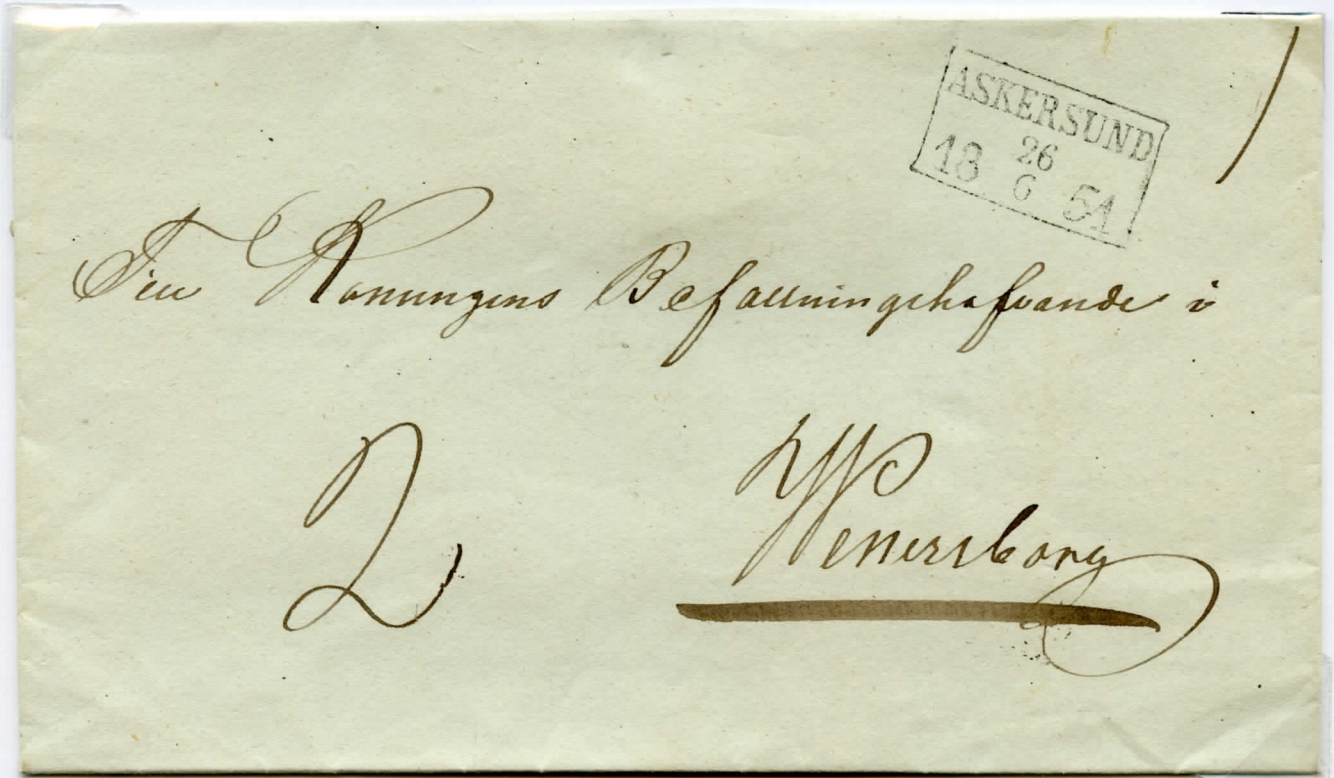 ASKERSUND
26
18 6 51
Till Konungens Befallningshafvande i
2
Wenersborg